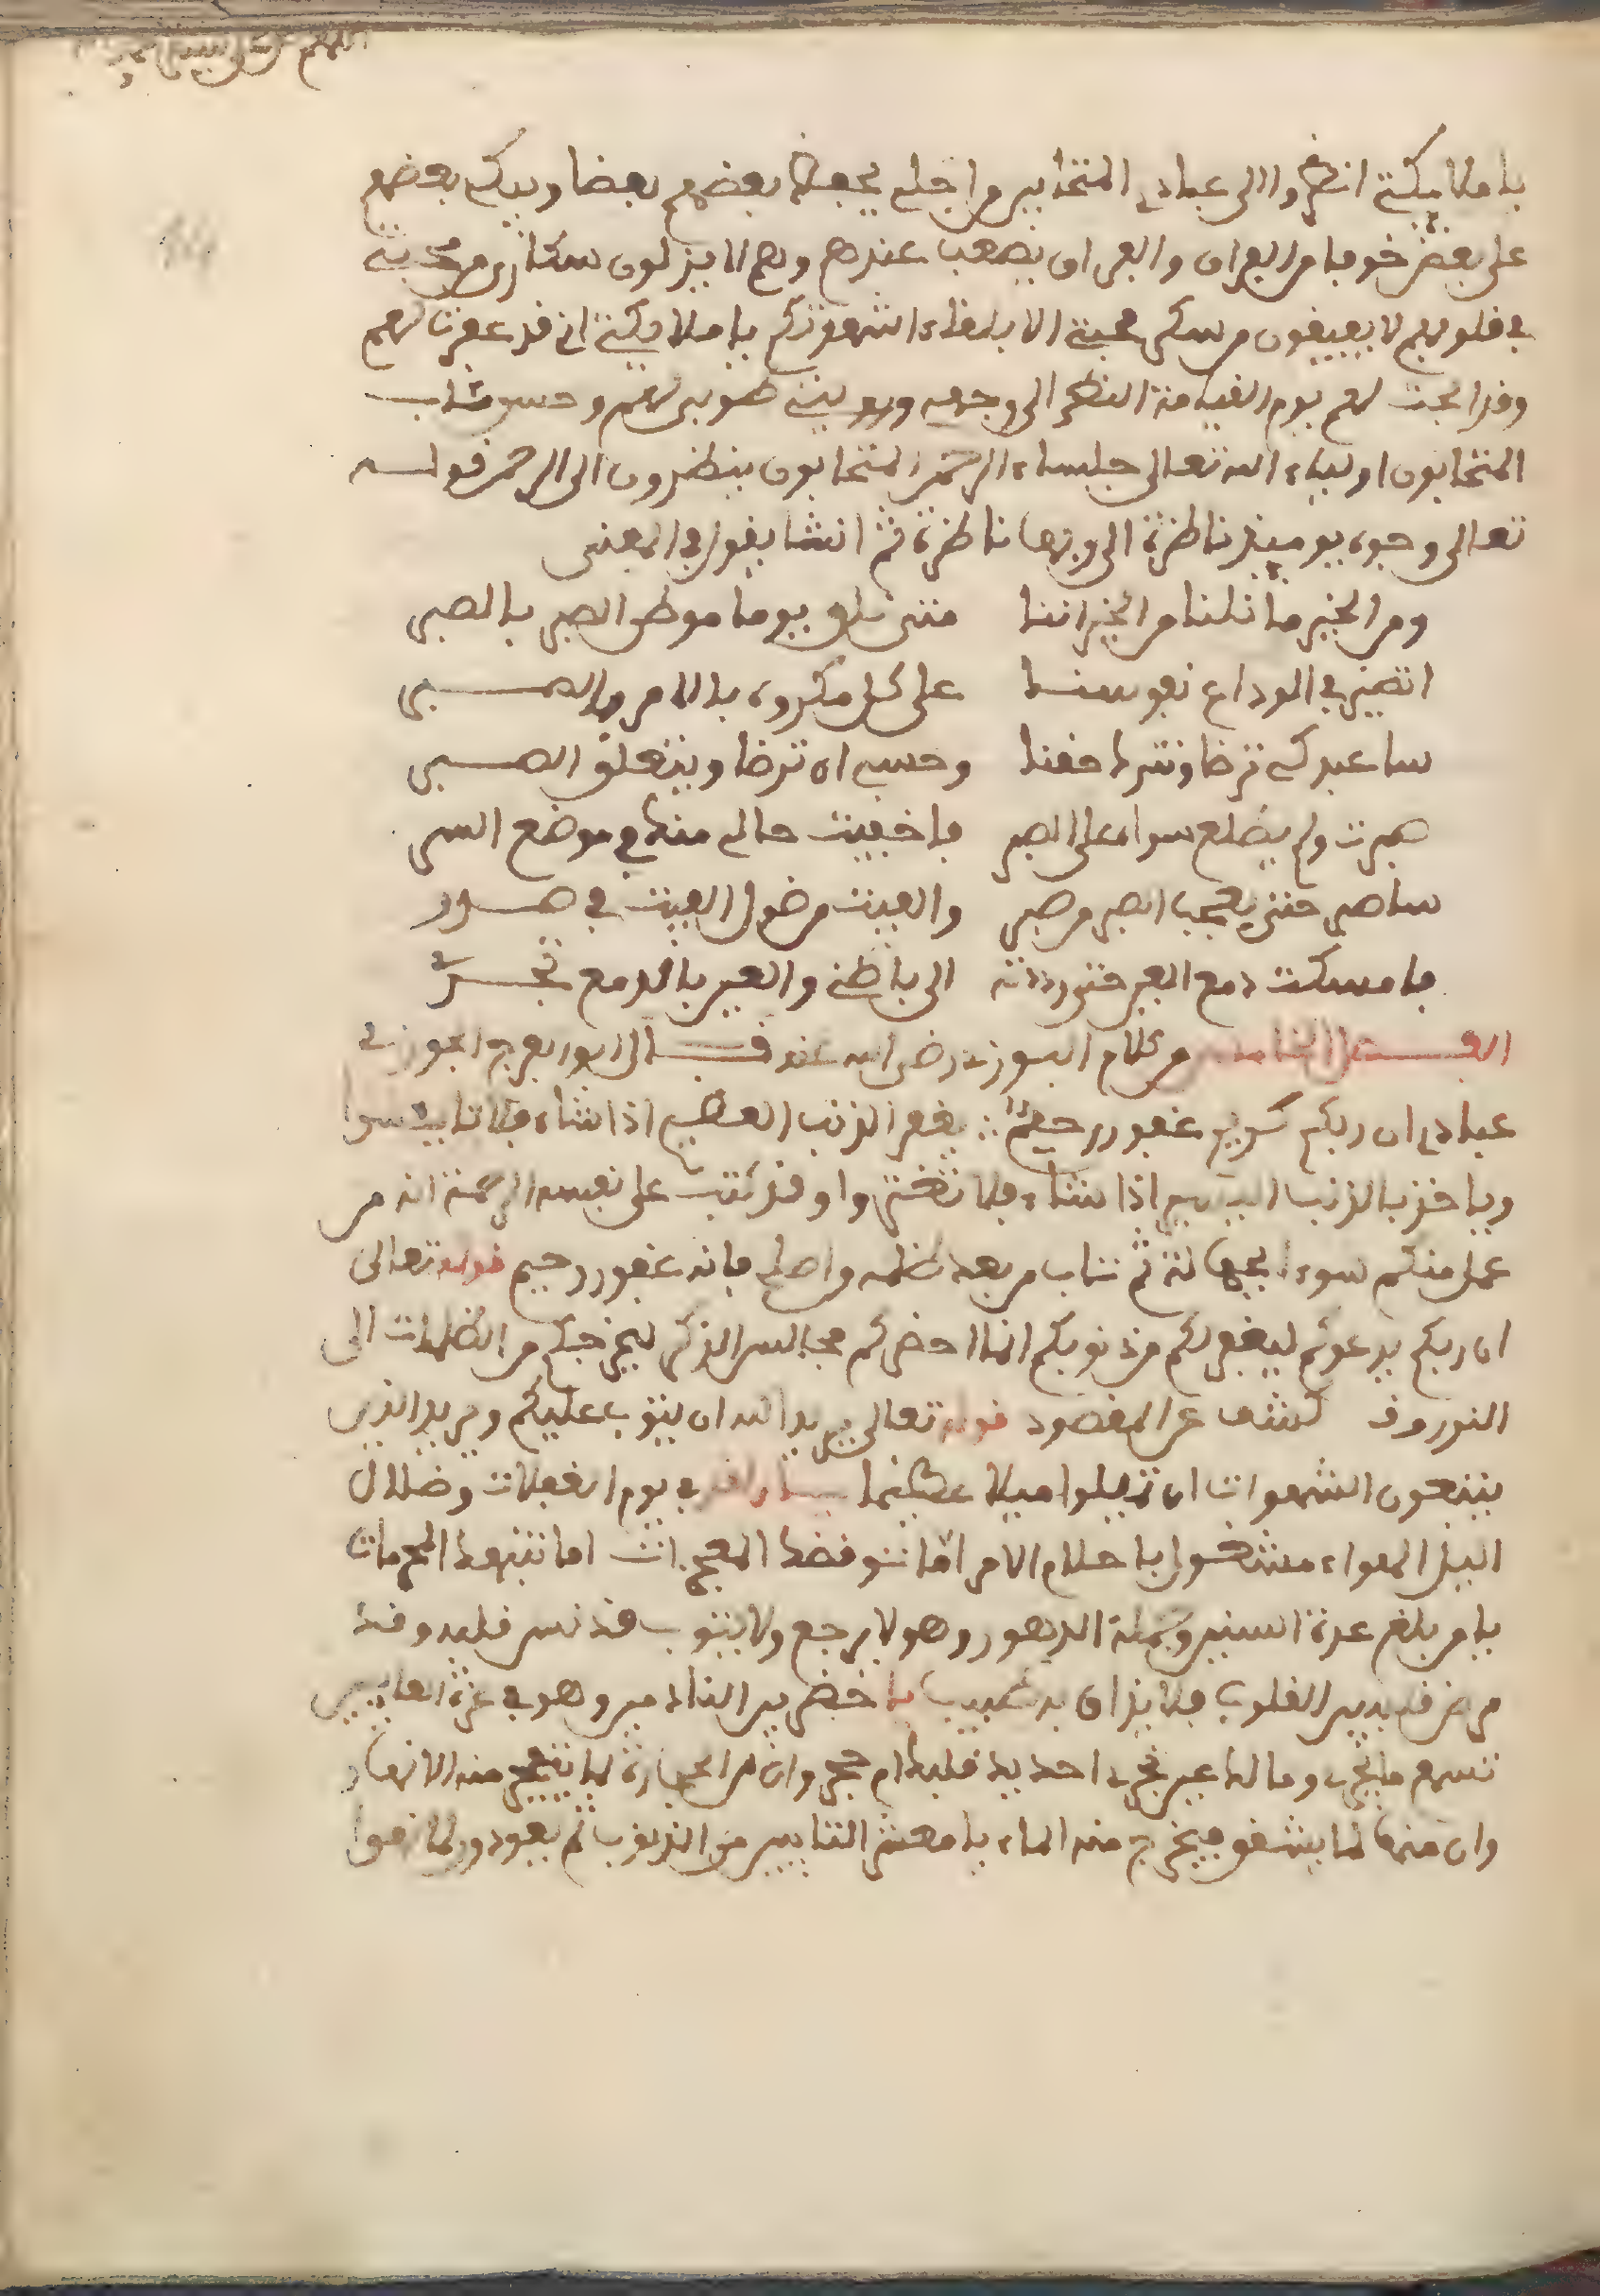 يا ملايكتي انظروا الى عبادي المتحابين من اجلي يحفظ بعضهم بعضا ويبكي بعضهم
على بعض خوفا من الفراق والفراق يصعب عندهم وهم لا يزلون سكارى من محبتي
في قلوبهم لا يفيقون من سكر محبتي الا بلقاء اشهدكم يا ملايكتي اني قد غفرت لهم
وقد ابحت لهم يوم القيمة النظر الى وجهي ورويتي طوبى لهم وحسن مئاب
المتحابون اولياء الله تعالى جلساء الرحمن المتحابون ينظرون الى الرحمن قولـه
تعالى وجوه يوميذ ناظرة الى ربها ناظرة ثم انشا يقول في المعنى
ومن الخير ما نلنا من الخير اننا متى نلق يوما موطن الصبر بالصبر
في الوداع نفوسنا على كل مكروه بالامر والصبـر
ساعبدك ترضا وحسبي ان ترضا ويتعلق الصبـر
صبرت ولم يطلع سواء على الصبر فاخفيت حالي منك في موضع السر
ساصبر حتى يعجب الصبر من صبر في صـدر
فامسكت دمع العين حتى رددته الى باطني والعين بالدمع تجـري
الفـصل الثامن من كلام الجوزي رضى الله عنه قـال ابو الفرج الجوزي
عبادي ان ربكم كريم غفور رحيم يغفر الذنب العظيم اذا شاء فلا تايسوا
وياخذ بالذنب اليسير اذا شاء فلا تغتروا وقد كتب على نفسه الرحمة انه من
عمل منكم سوءا بجهالة ثم تاب من بعد ظلمه واصلح فانه غفور رحيم قوله تعالى
ان ربكم يدعوكم ليغفر لكم من ذنوبكم انما احضركم مجالس الذكر ليخرجكم من الظلمات الى
النور وقد كشف عن المقصود قوله تعالى يريد الله ان يتوب عليكم ويريد الذين
يتبعون الشهوات ان تميلوا ميلا عظيما في يوم الغفلات وضلال
اليل الهواء باحلام الامر اما توقضك المعجزات اما تنهك المحرمات
يا من بلغ عدة السنين وجملة الدهور وهو لا يرجع ولا يتوب قد نسر قلبه وقد
مرض قلبه بين القلوب يا خضر بين النادمين وهو في عزة الغايبين
تسمع ما يجرى وما لك عين تجرى احديد قلبك ام حجر وان من الحجارة لما يتفجر منه الانهار
وان منها لما يشقق فيخرج منه الماء يا معشر التايبين من الذنوب ثم يعودون لما نهوا